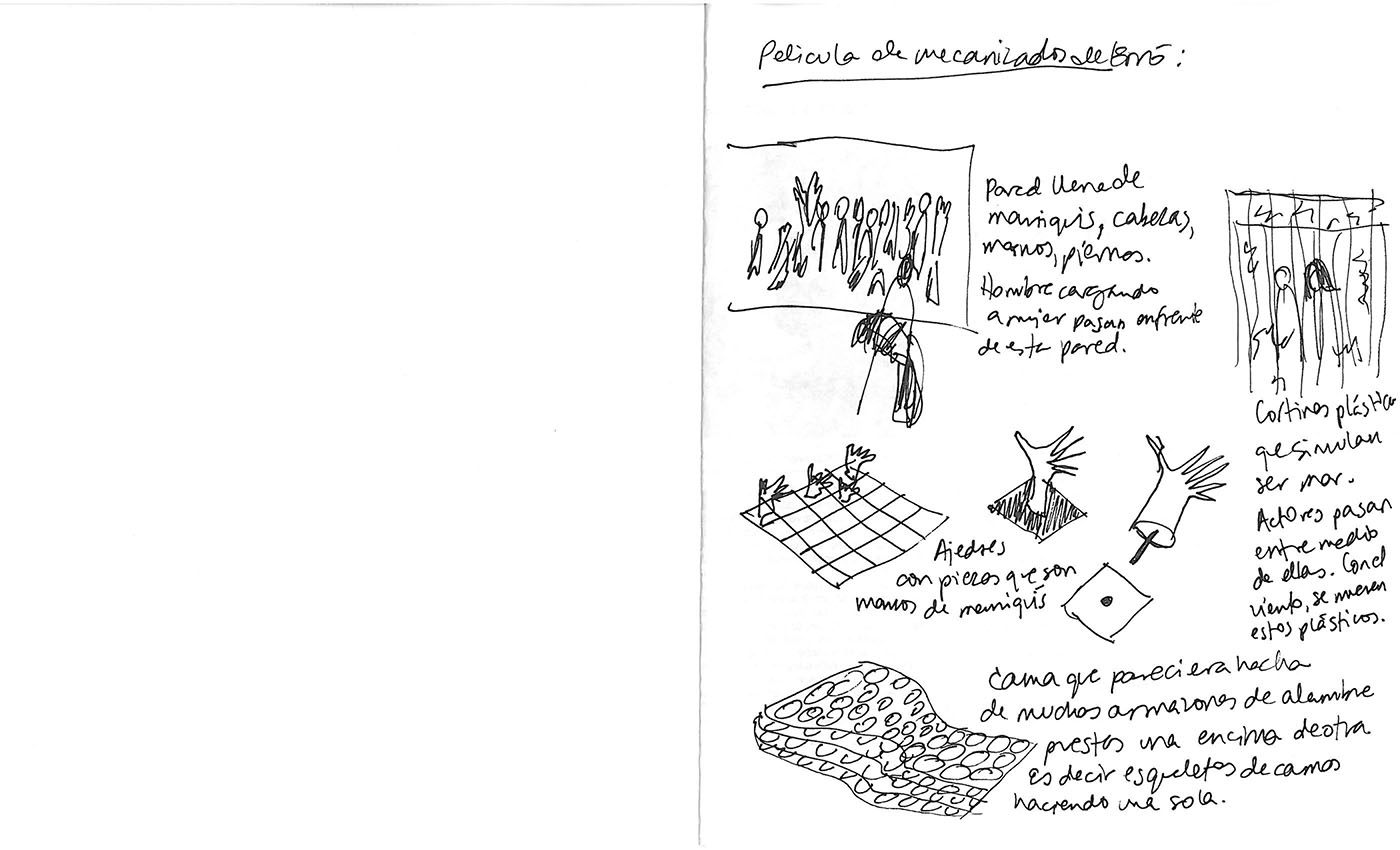 Pelicula de mecanizados de Erró:
Pared llena de
maniquis, cabezas,
manos, piernas.
Hombre cargando
a mujer pasan enfrente
de esta pared.
Cortinas plásticas
que simulan
ser mar.
Actores pasan
entre medio
de ellas. Con el
viento, se mueven
estos plásticos.
Ajedres
con piezas que son
manos de maniquís
Cama que pareciera hecha
de muchos armazones de alambre
puestos una encima de otra
Es decir esqueletos de camas
haciendo una sola.